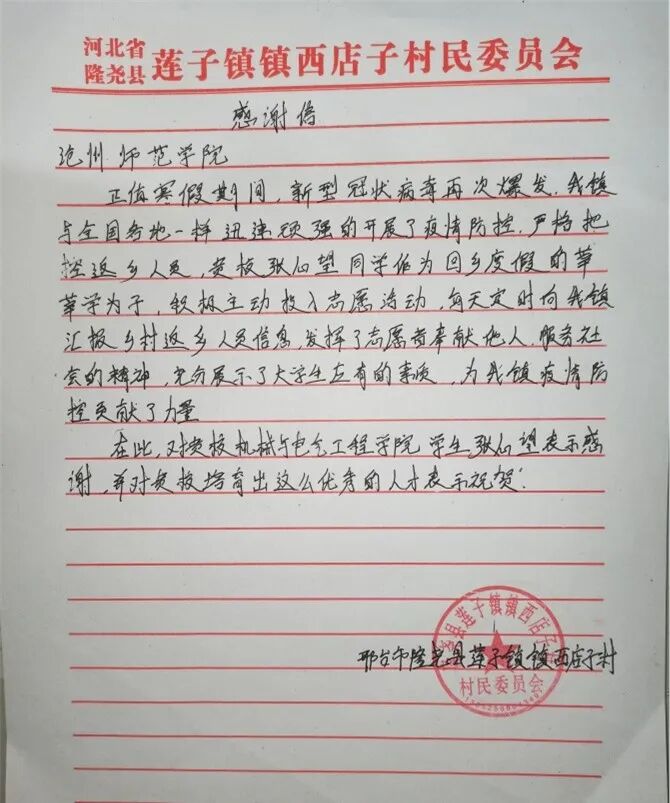 河北省
隆尧县
莲子镇镇西店子村民委员会
感谢信
沧州师范学院
正值寒假期间，新型冠状病毒再次爆发，我镇
与全国各地一样迅速顽强的开展了疫情防控，严格把
控返乡人员，贵校张仙望同学作为回乡度假的莘
莘学为子，积极主动投入志愿活动，每天定时向我镇
汇报乡村返乡人员信息，发挥了志愿者奉献他人，服务社
会的精神，充分展示了大学生应有的素质，为我镇疫情防
控贡献了力量
在此，对贵校机械与电气工程学院学生张仙望表示感
谢，并对贵校培育出这么优秀的人才表示祝贺！
邢台市隆尧县莲子镇镇西店子村
尧县莲子镇镇西店子
村民委员会